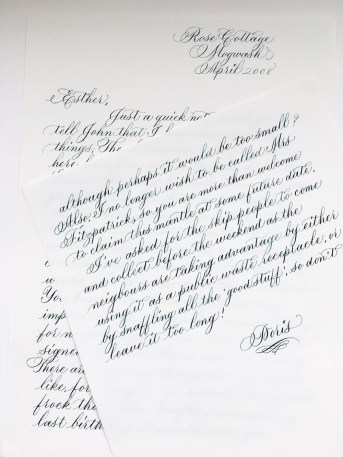 Rose Cottage
Mogwash
April 2008
Esther,
Just a quick not
tell John that I
things. The
here
although perhaps it would be too small?
Also: I no longer wish to be called Mrs
Fitzpatrick, so you are more than welcome
to claim this mantle at some future date.
I've asked for the skip people to come
and collect before the weekend as the
neigbours are taking advantage by either
using it as a public waste receptacle, or
by snaffling all the 'good stuff', so don't
leave it too long!
Doris
You
imp
for n
signe
There ar
like, for
frock the
last birth